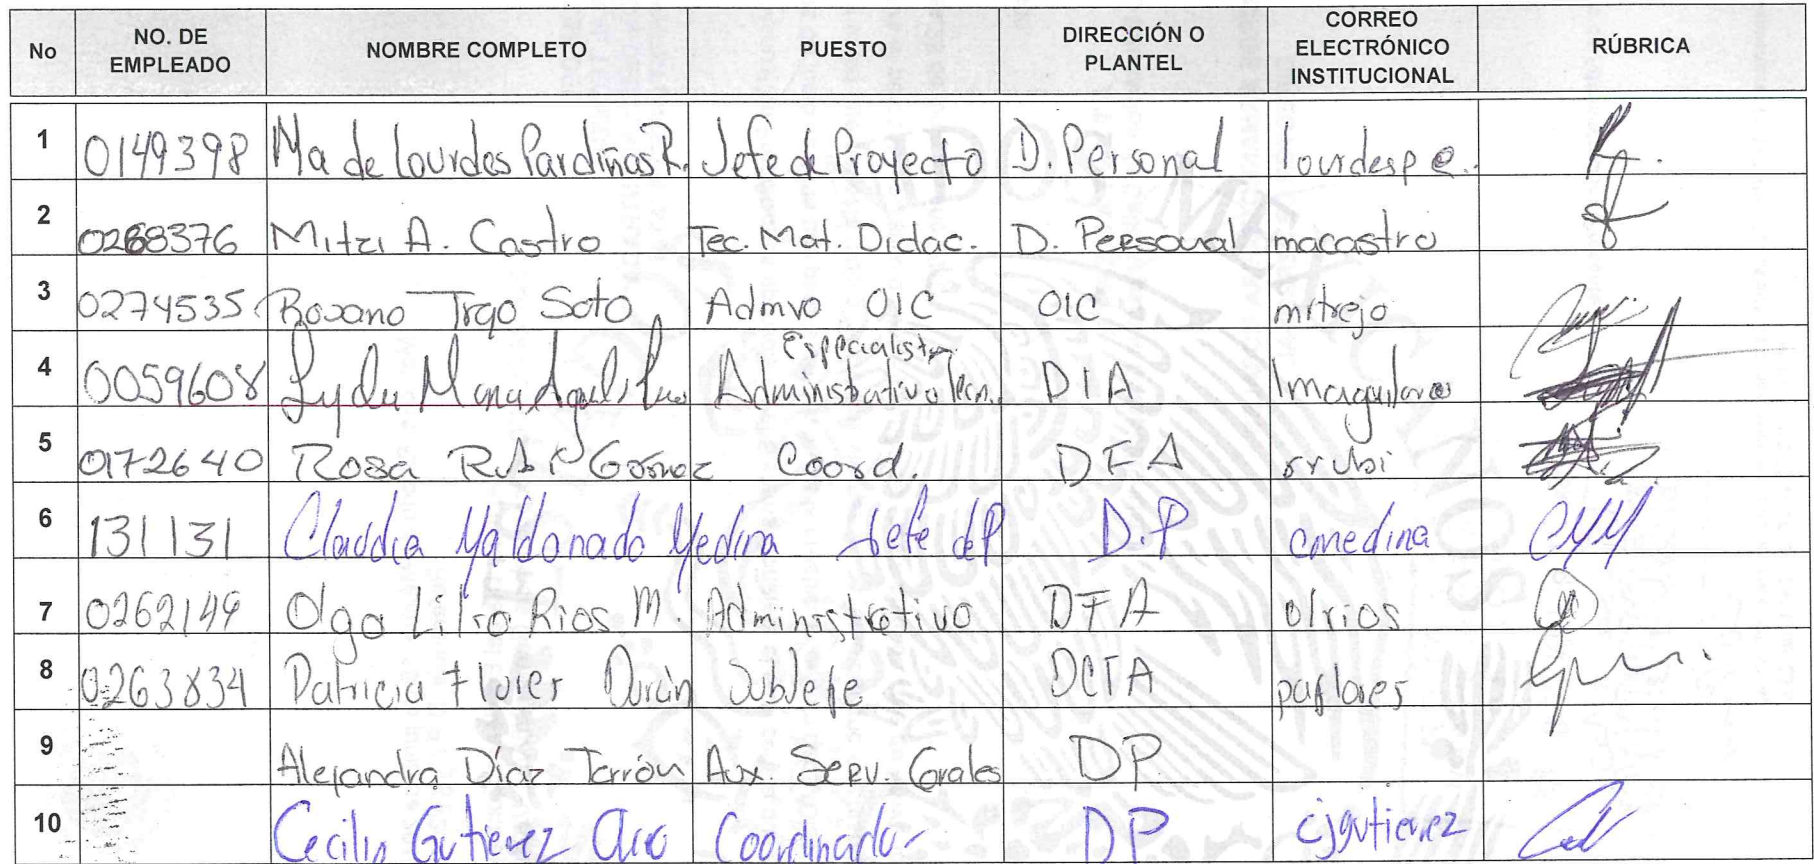 No NO. DE EMPLEADO NOMBRE COMPLETO PUESTO DIRECCIÓN O PLANTEL CORREO ELECTRÓNICO INSTITUCIONAL RÚBRICA
1 0149398 Ma de Lourdes Pardiñas R. Jefe de Proyecto D. Personal lourdesp@.
2 0268376 Mitzi A. Castro Tec. Mat. Didac. D. Personal macastro
3 0274535 Soto Admvo OIC OIC mrtrejo
Especialista
4 0059608 Administrativo Tecn. DIA
5 0172640 Rosa Coord. DFA rrubi
6 131131 Claudia Maldonado Medina Jefe de P D.P cmedina CMM
7 0262149 Olga Lilia Rios M. Administrativo DFA olrios
8 0263834 Patricia Flores Durán SubJefe DCTA paflores
9 Alejandra Díaz Terrón Aux. Serv. Grales DP
10 Cecilia Gutierrez Coordinador DP cjgutierrez